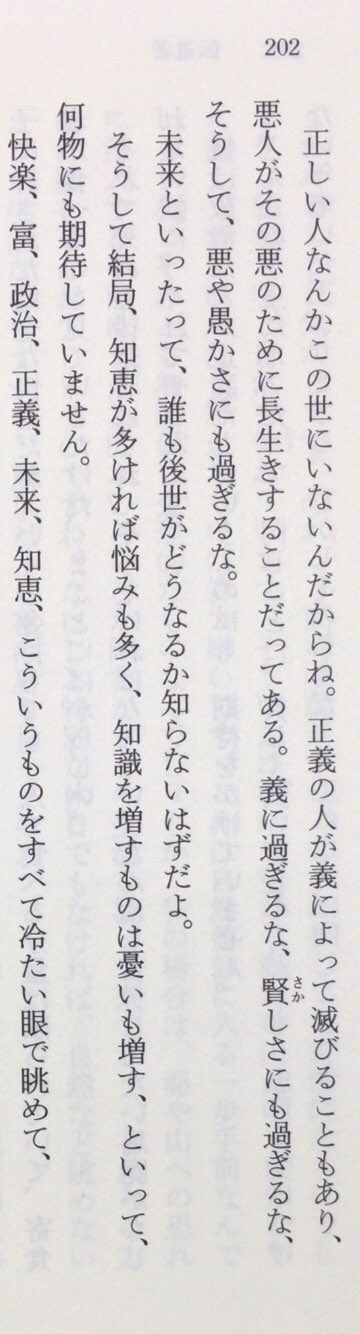 202
正しい人なんかこの世にいないんだからね。正義の人が義によって滅びることもあり、
悪人がその悪のために長生きすることだってある。義に過ぎるな、賢しさにも過ぎるな、
そうして、悪や愚かさにも過ぎるな。
未来といったって、誰も後世がどうなるか知らないはずだよ。
そうして結局、知恵が多ければ悩みも多く、知識を増すものは憂いも増す、といって、
何物にも期待していません。
快楽、富、政治、正義、未来、知恵、こういうものをすべて冷たい眼で眺めて、